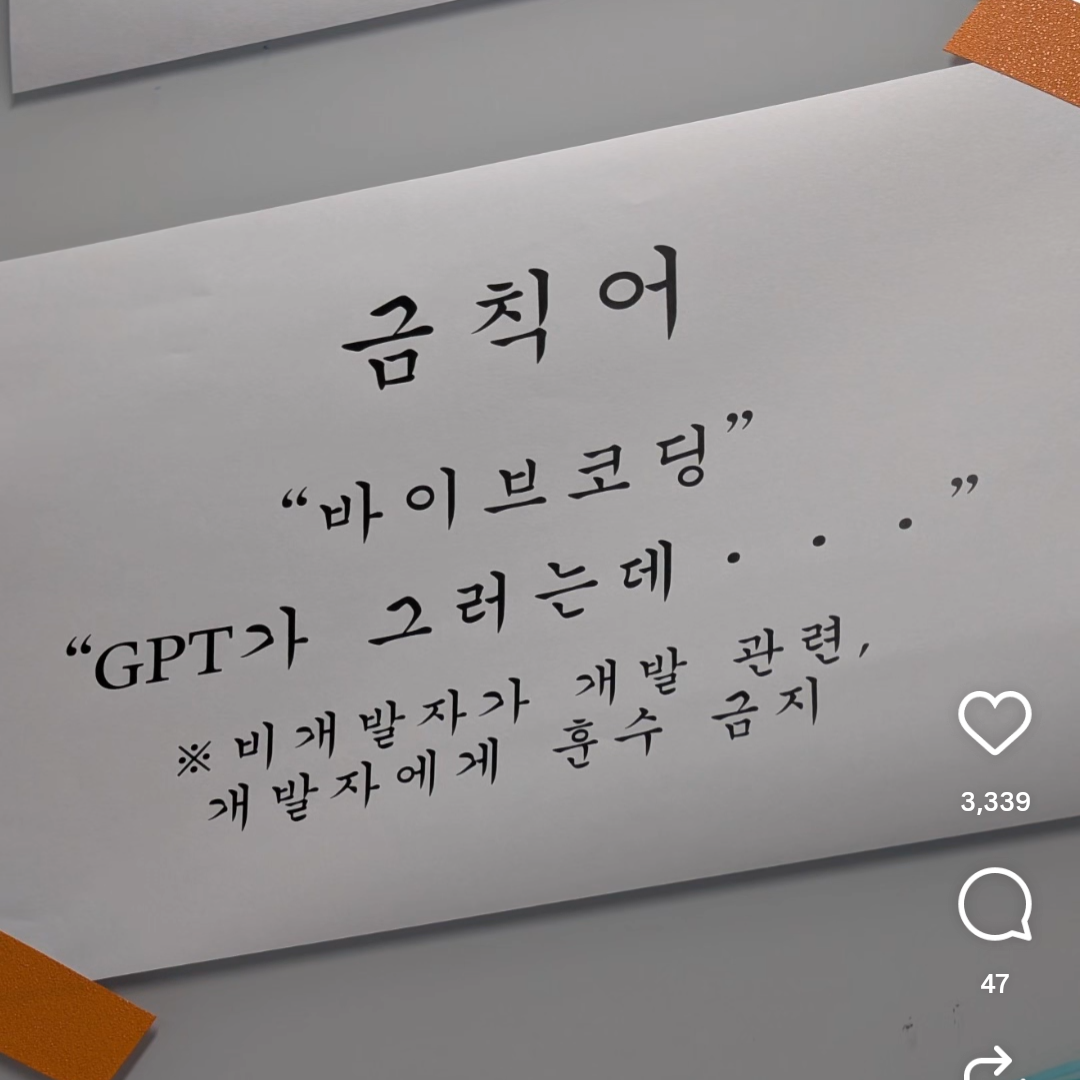 금칙어
“바이브코딩”
“GPT가 그러는데 · · ·”
※비개발자가 개발 관련,
개발자에게 훈수 금지
3,339
47